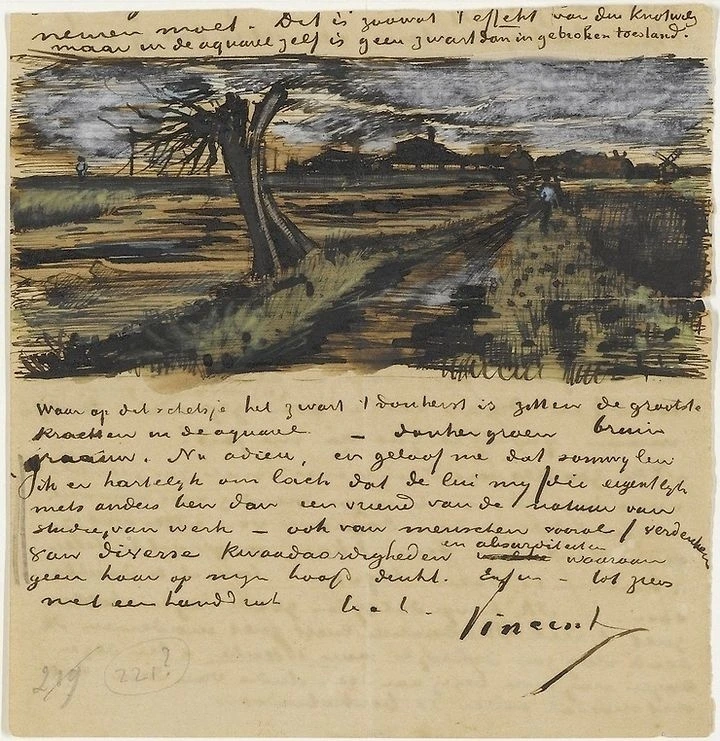 nemen moet. Dit is zoowat 't effekt van den Knotwilg
maar in de aquarel zelf is geen zwart dan in gebroken toestand.
Waar op dit schetsje het zwart 't donkerst is zitten de grootste
krachten in de aquarel – donkergroen bruin
graauw. Nu adieu, en geloof me dat somwylen
ik er hartelyk om lach dat de lui my /die eigentlyk
niets anders ben dan een vriend van de natuur van
studie, van werk – ook van menschen vooral/ verdenken
van diverse kwaadaardigheden en absurditeiten waaraan
geen haar op myn hoofd denkt. Enfin – tot ziens
met een handdruk
Vincent
221?